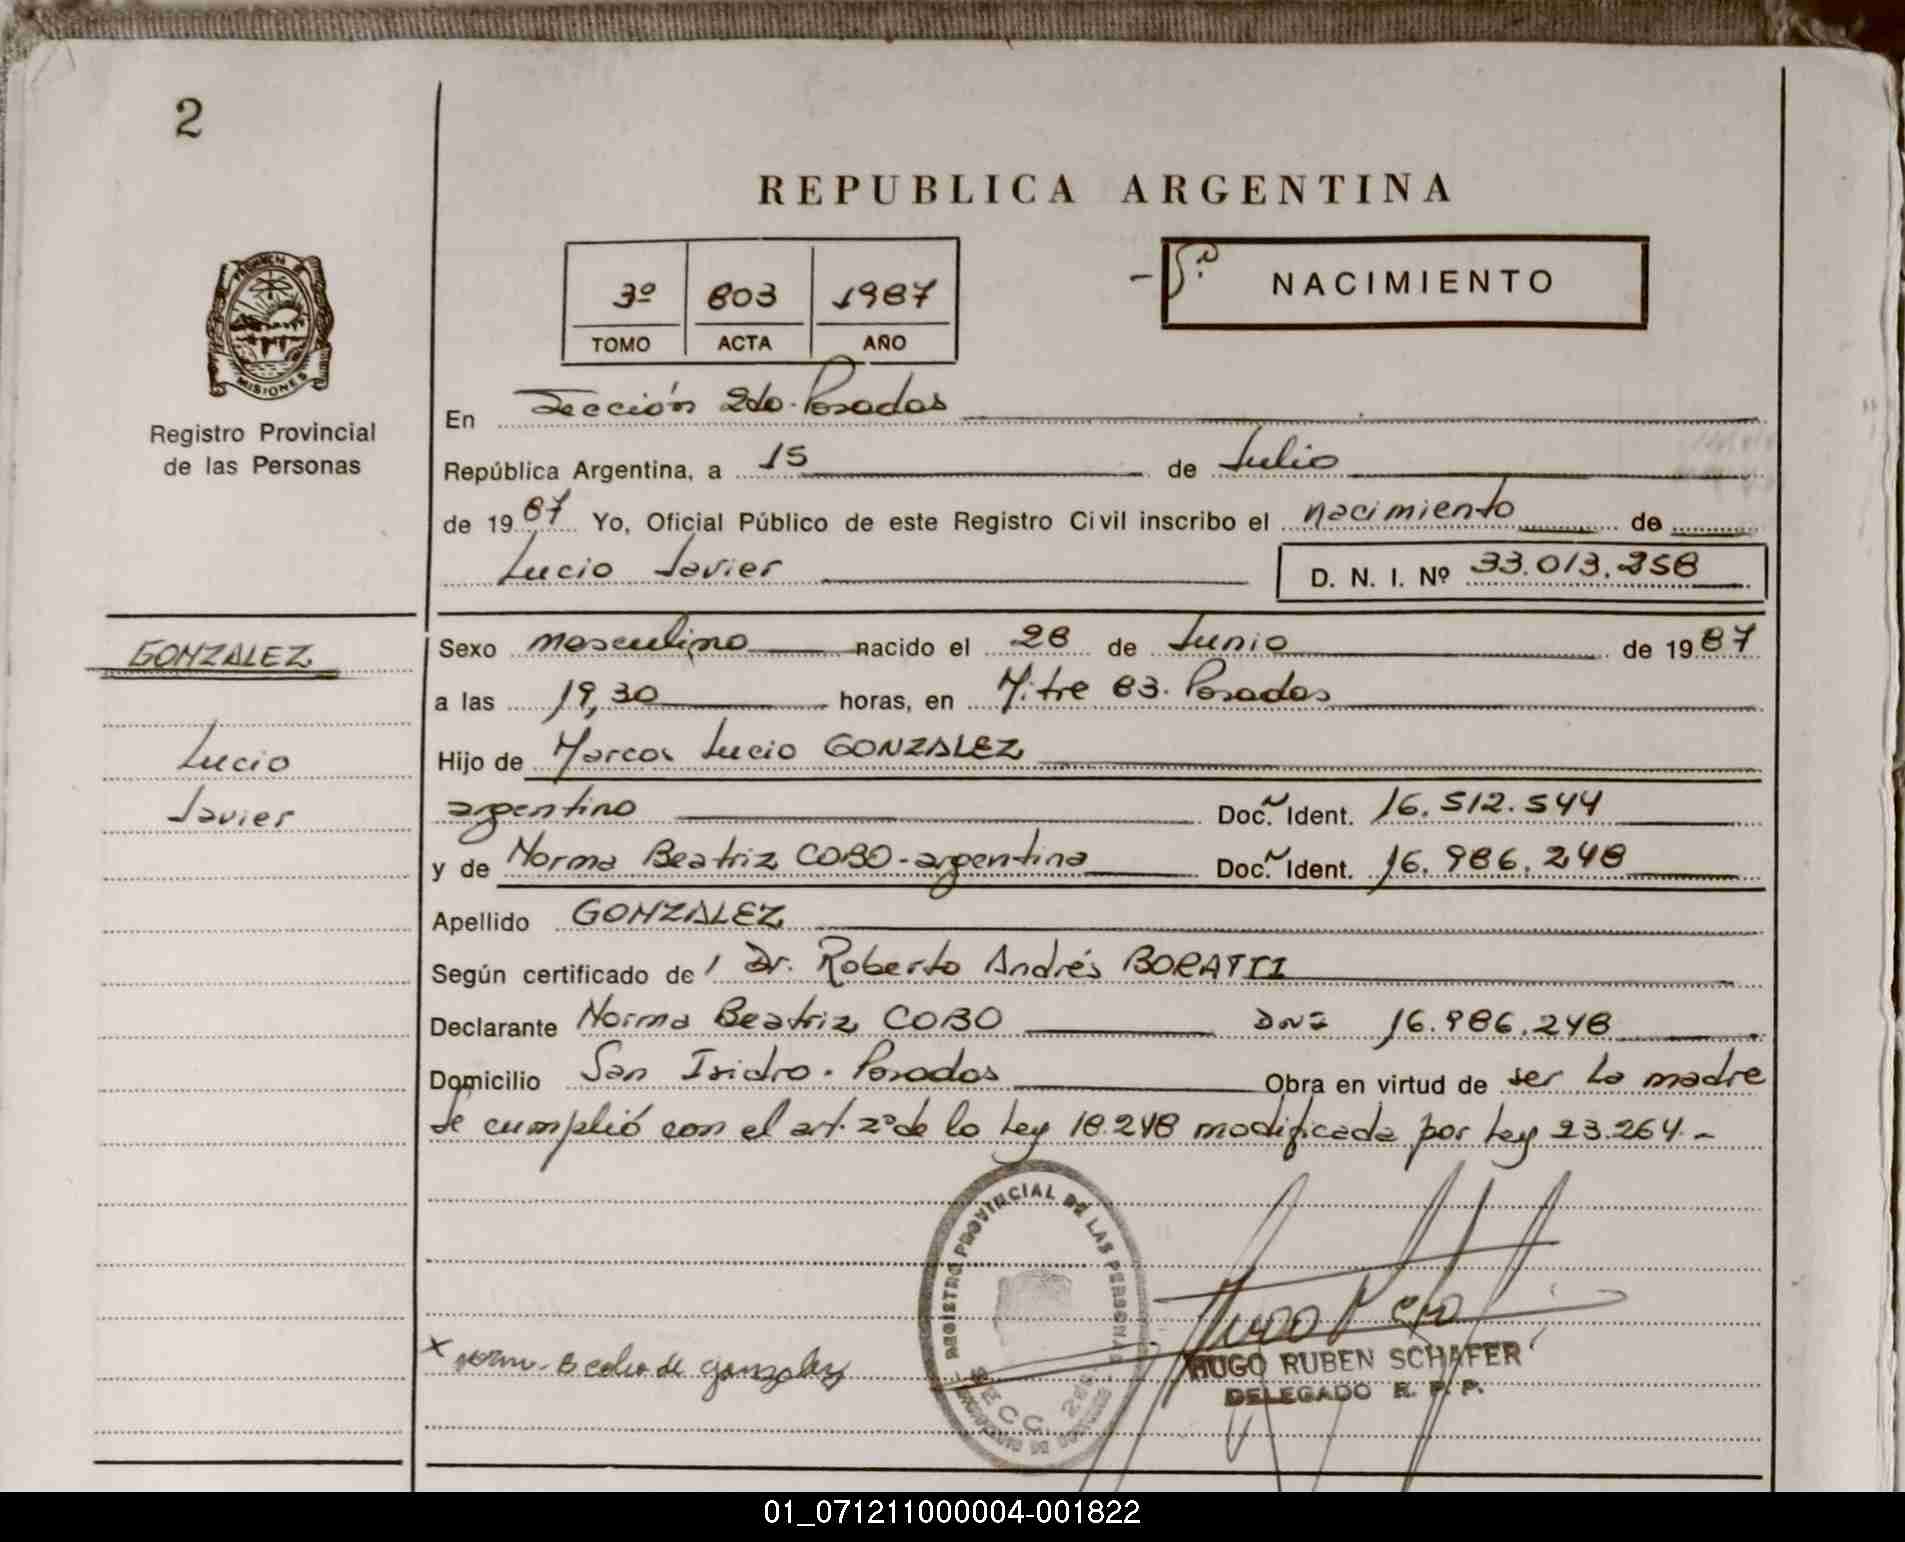 2
REPUBLICA ARGENTINA
3º 803 1987
TOMO ACTA AÑO
NACIMIENTO
PROVINCIA DE
MISIONES
Registro Provincial
de las Personas
En Sección 2da. Posadas
República Argentina, a 15 de Julio
de 1987 Yo, Oficial Público de este Registro Civil inscribo el nacimiento de
Lucio Javier D. N. I. Nº 33.013.258
GONZALEZ
Lucio
Javier
Sexo masculino nacido el 28 de Junio de 1987
a las 19,30 horas, en Mitre 83. Posadas
Hijo de Marcos Lucio GONZALEZ
argentino Doc. Ident. 16.512.544
y de Norma Beatriz COBO - argentina Doc. Ident. 16.986.248
Apellido GONZALEZ
Según certificado de / Dr. Roberto Andrés BORATTI
Declarante Norma Beatriz COBO DNI 16.986.248
Domicilio San Isidro. Posadas Obra en virtud de ser la madre
Se cumplió con el art. 2º de la Ley 18.248 modificada por Ley 23.264.-
REGISTRO PROVINCIAL DE LAS PERSONAS
SECC. 2da
x Norm. B cobo de gonzalez
HUGO RUBEN SCHAFER
DELEGADO R. P. P.
01_071211000004-001822